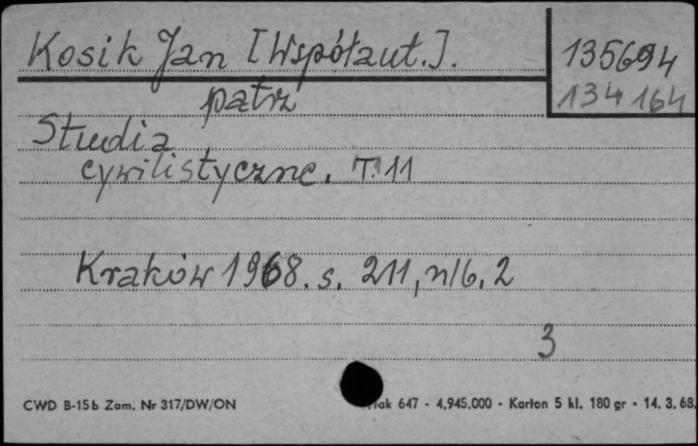 Kosik Jan [Współaut.].
135694
134164
patrz
Studia
cywilistyczne. T. 11
Kraków 1968. s. 211, nlb. 2
3
CWD B-15b Zam. Nr 317/DW/ON
647 - 4.945.000 - Karton 5 kl. 180 gr - 14. 3. 68.